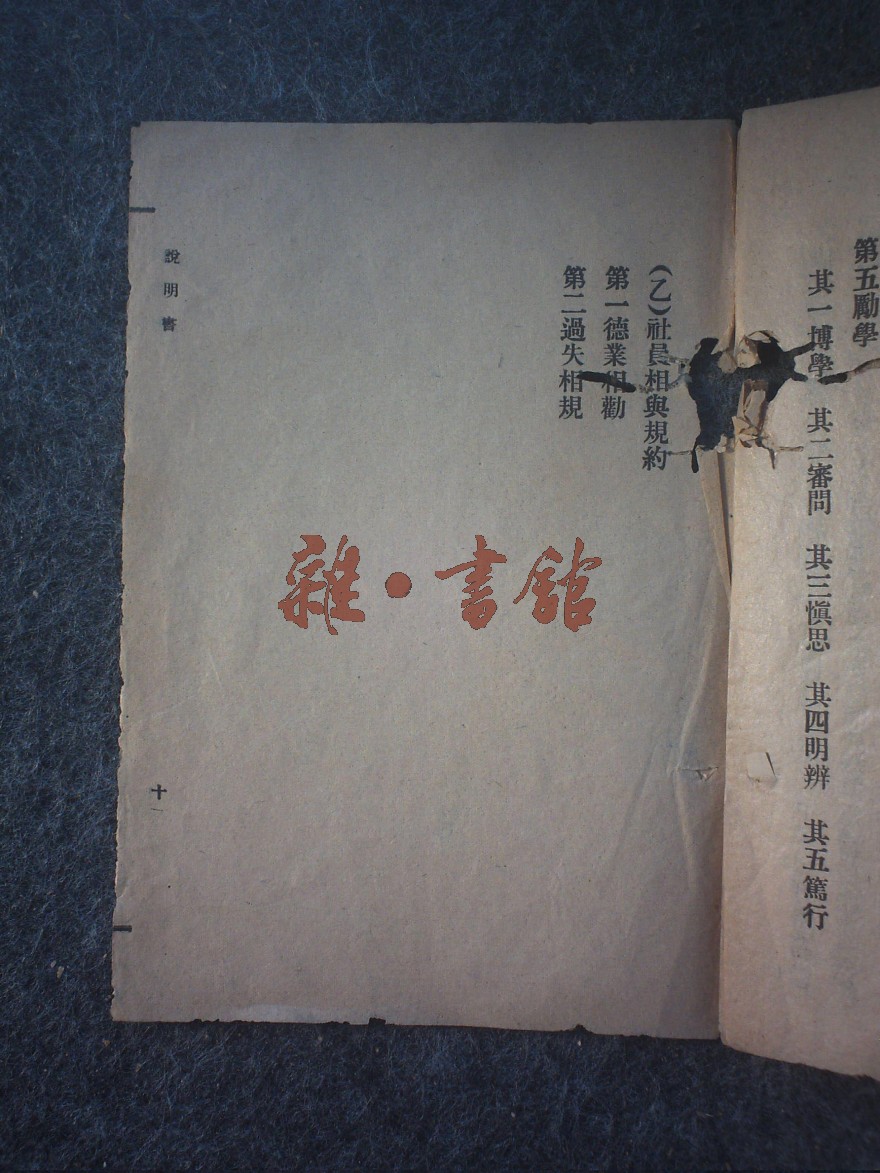 第五勵學
其一博學　其二審問　其三慎思　其四明辨　其五篤行
(乙)社員相與規約
第一德業相勸
第二過失相規
說明書
十一
雜·書館